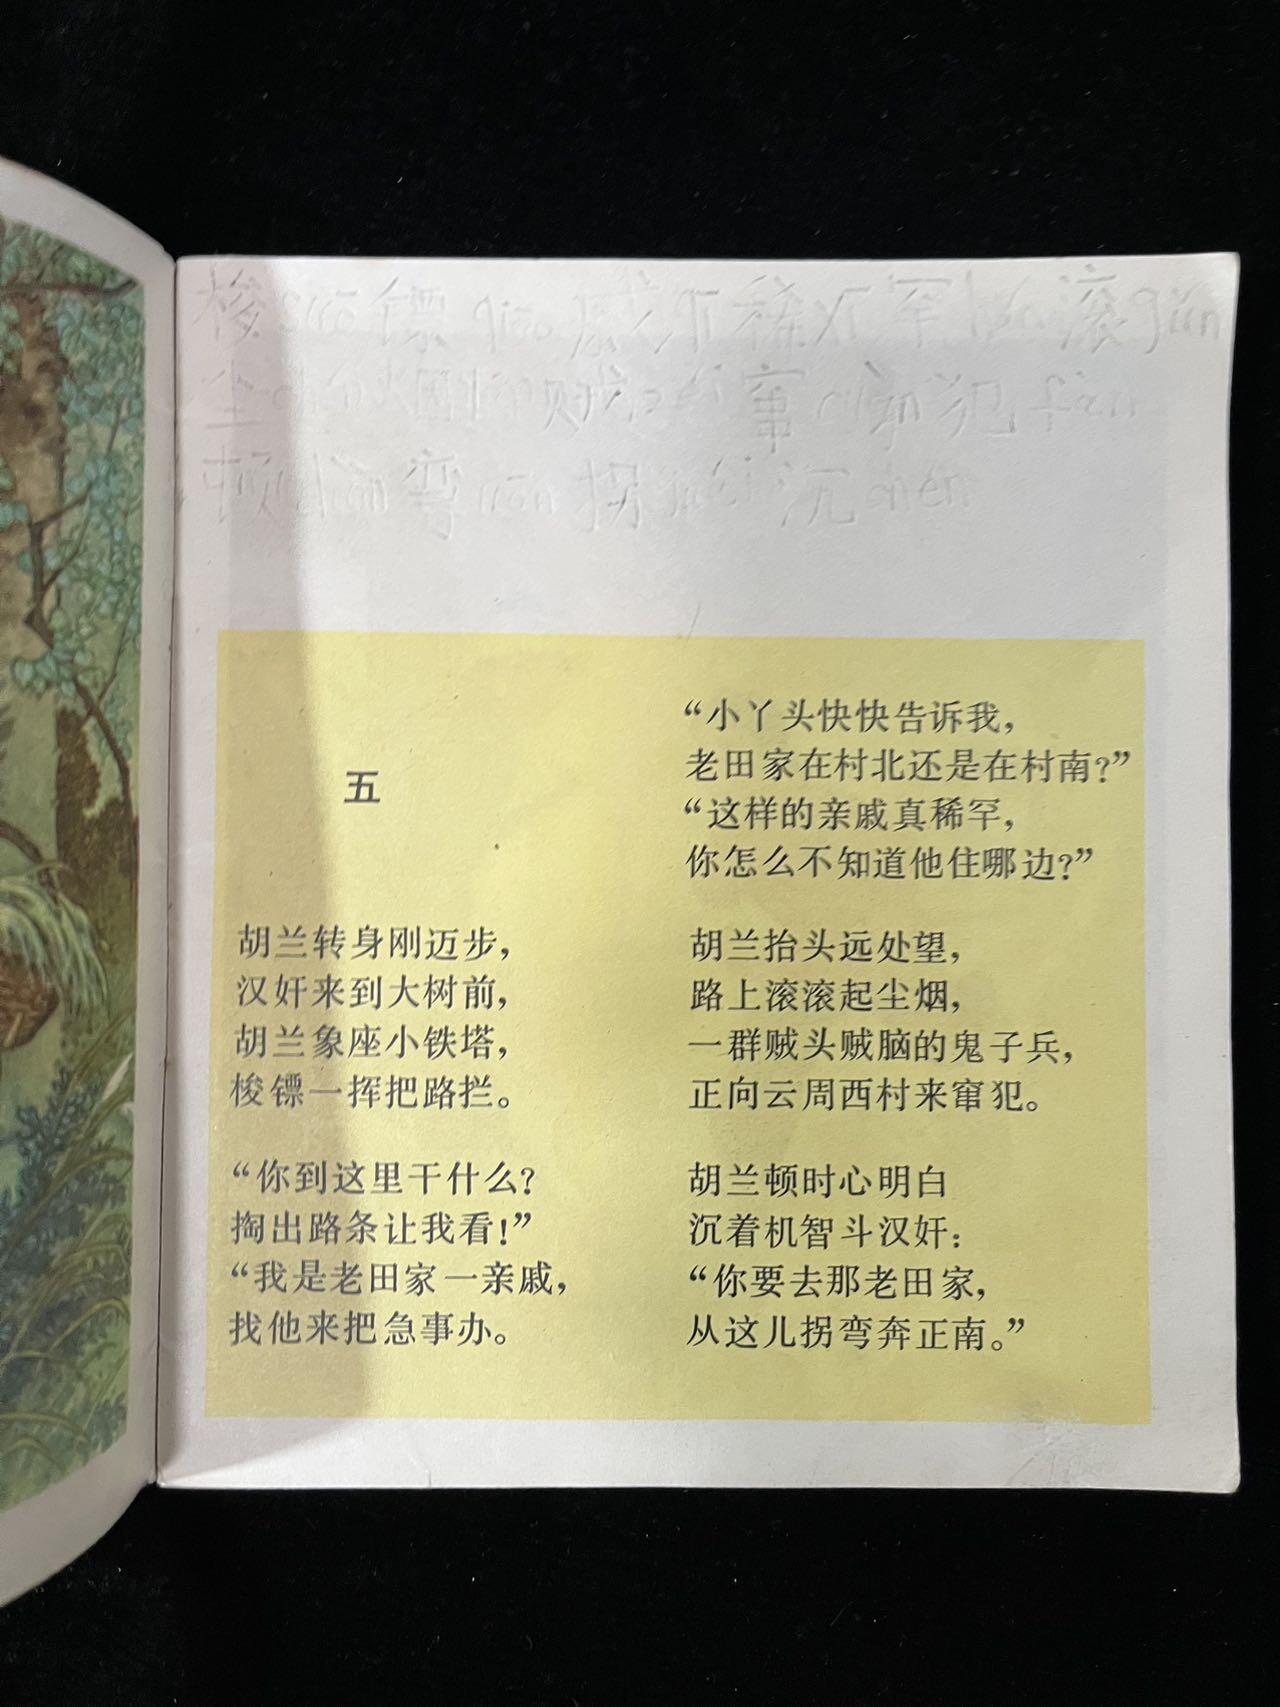 梭 suo 镖 戚 qi 稀 xi 罕 han 滚 gun
尘 烟 贼 zei 窜 cuan 犯 fan
顿 dun 弯 拐 guai 沉 chen
五
胡兰转身刚迈步，
汉奸来到大树前，
胡兰象座小铁塔，
梭镖一挥把路拦。
“你到这里干什么？
掏出路条让我看！”
“我是老田家一亲戚，
找他来把急事办。
“小丫头快快告诉我，
老田家在村北还是在村南？”
“这样的亲戚真稀罕，
你怎么不知道他住哪边？”
胡兰抬头远处望，
路上滚滚起尘烟，
一群贼头贼脑的鬼子兵，
正向云周西村来窜犯。
胡兰顿时心明白
沉着机智斗汉奸：
“你要去那老田家，
从这儿拐弯奔正南。”